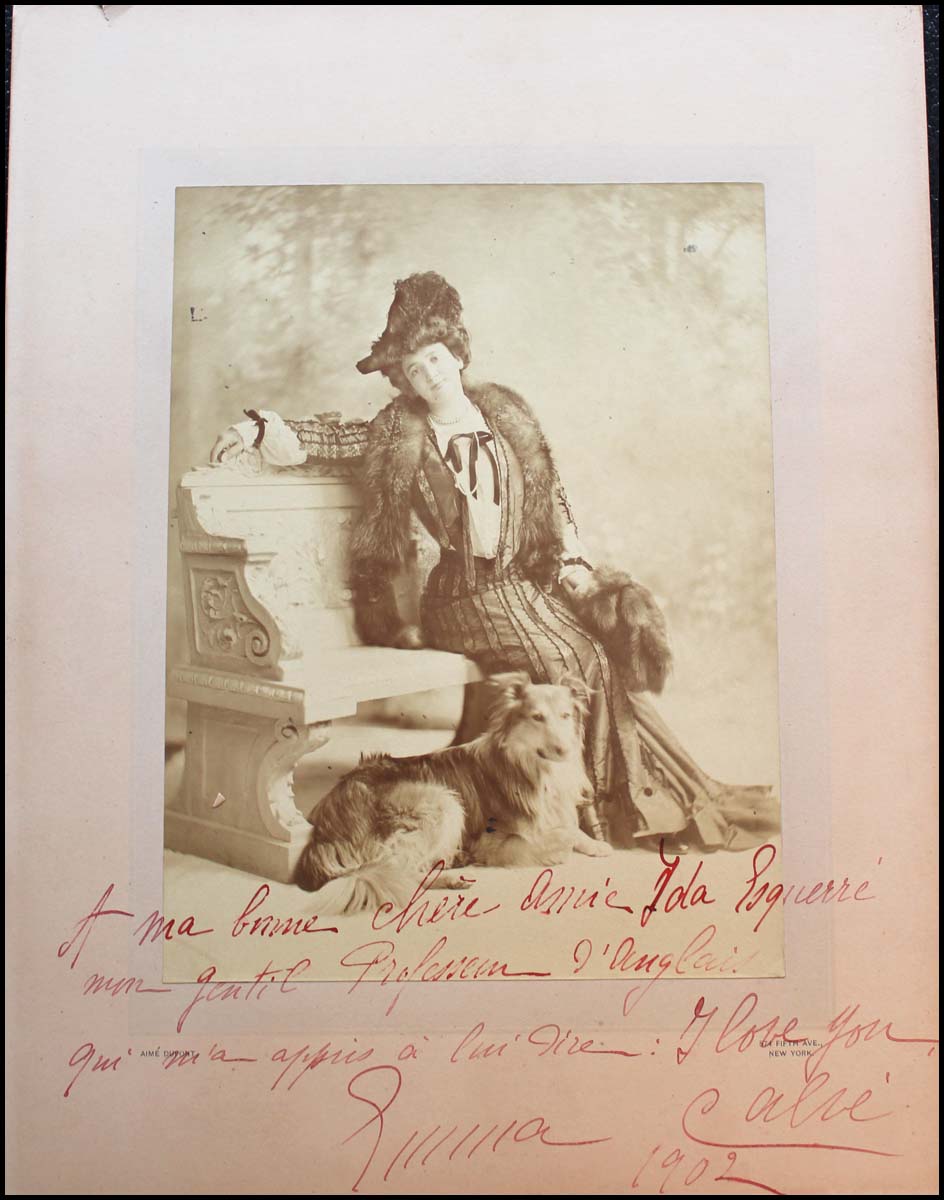 A ma bonne chère amie Ida Esquerré
mon gentil Professeur d'anglais
qui m'a appris à lui dire : I love you,
AIMÉ DUPONT
574 FIFTH AVE.,
NEW YORK.
Emma Calvé
1902